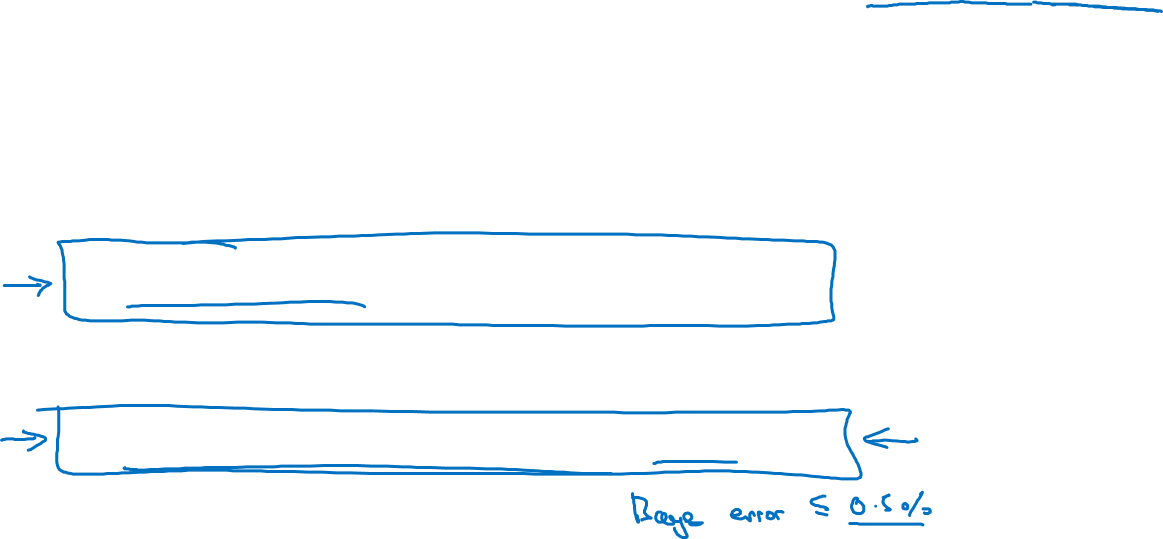 Baye error ≤ 0.5%